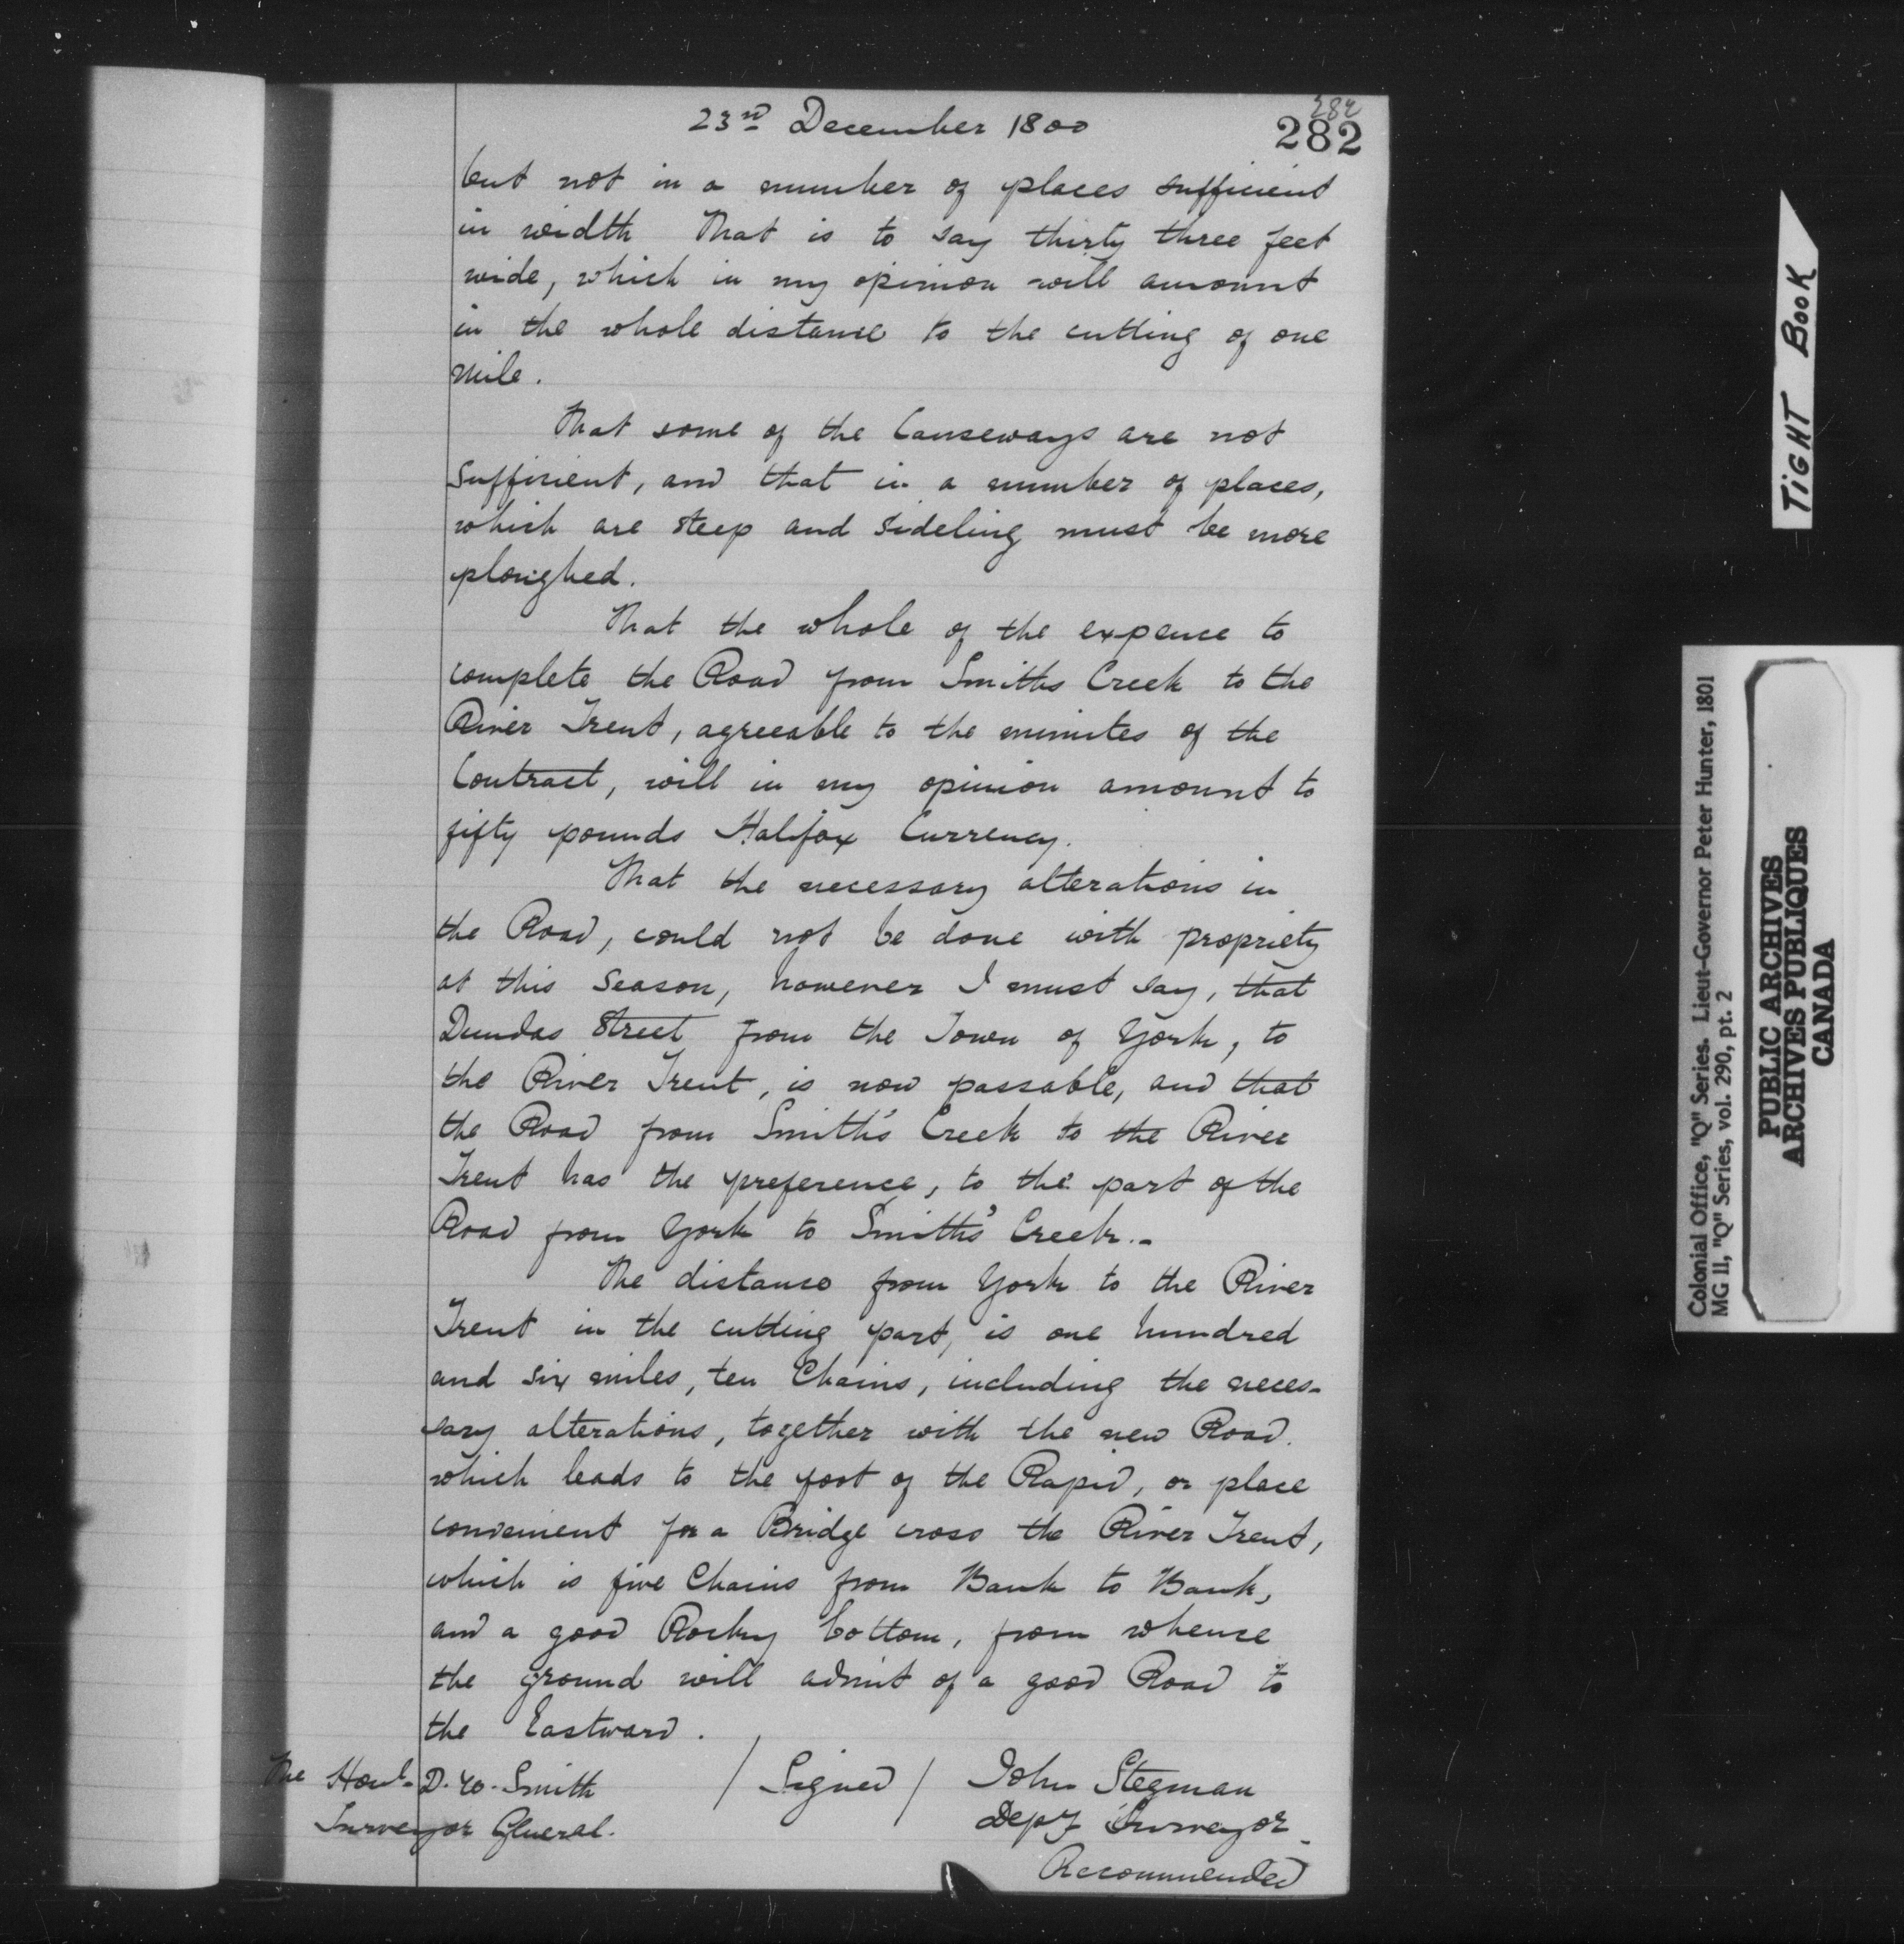 23rd December 1800
282
282
but not in a number of places sufficient
in width That is to say thirty three feet
wide, which in my opinion will amount
in the whole distance to the cutting of one
Mile.
That some of the Causeways are not
sufficient, and that in a number of places,
which are steep and sideling must be more
ploughed.
That the whole of the expence to
complete the Road from Smiths Creek to the
River Trent, agreeable to the minutes of the
Contract, will in my opinion amount to
fifty pounds Halifax Currency.
That the necessary alterations in
the Road, could not be done with propriety
at this Season, however I must say, that
Dundas Street from the Town of York, to
the River Trent, is now passable, and that
the Road from Smith's Creek to the River
Trent has the preference, to the part of the
Road from York to Smith's Creek.-
The distance from York to the River
Trent in the cutting part, is one hundred
and six miles, ten Chains, including the neces-
sary alterations, together with the new Road.
which leads to the foot of the Rapid, or place
convenient for a Bridge cross the River Trent,
which is five Chains from Bank to Bank,
and a good Rocky bottom, from whence
the ground will admit of a good Road to
the Eastward.
The Honl. D. W. Smith / Signed / John Stegman
Surveyor General. Depy Surveyor
Recommended
TIGHT BOOK
Colonial Office, "Q" Series. Lieut-Governor Peter Hunter, 1801
MG 11, "Q" Series, vol. 290, pt. 2
PUBLIC ARCHIVES
ARCHIVES PUBLIQUES
CANADA